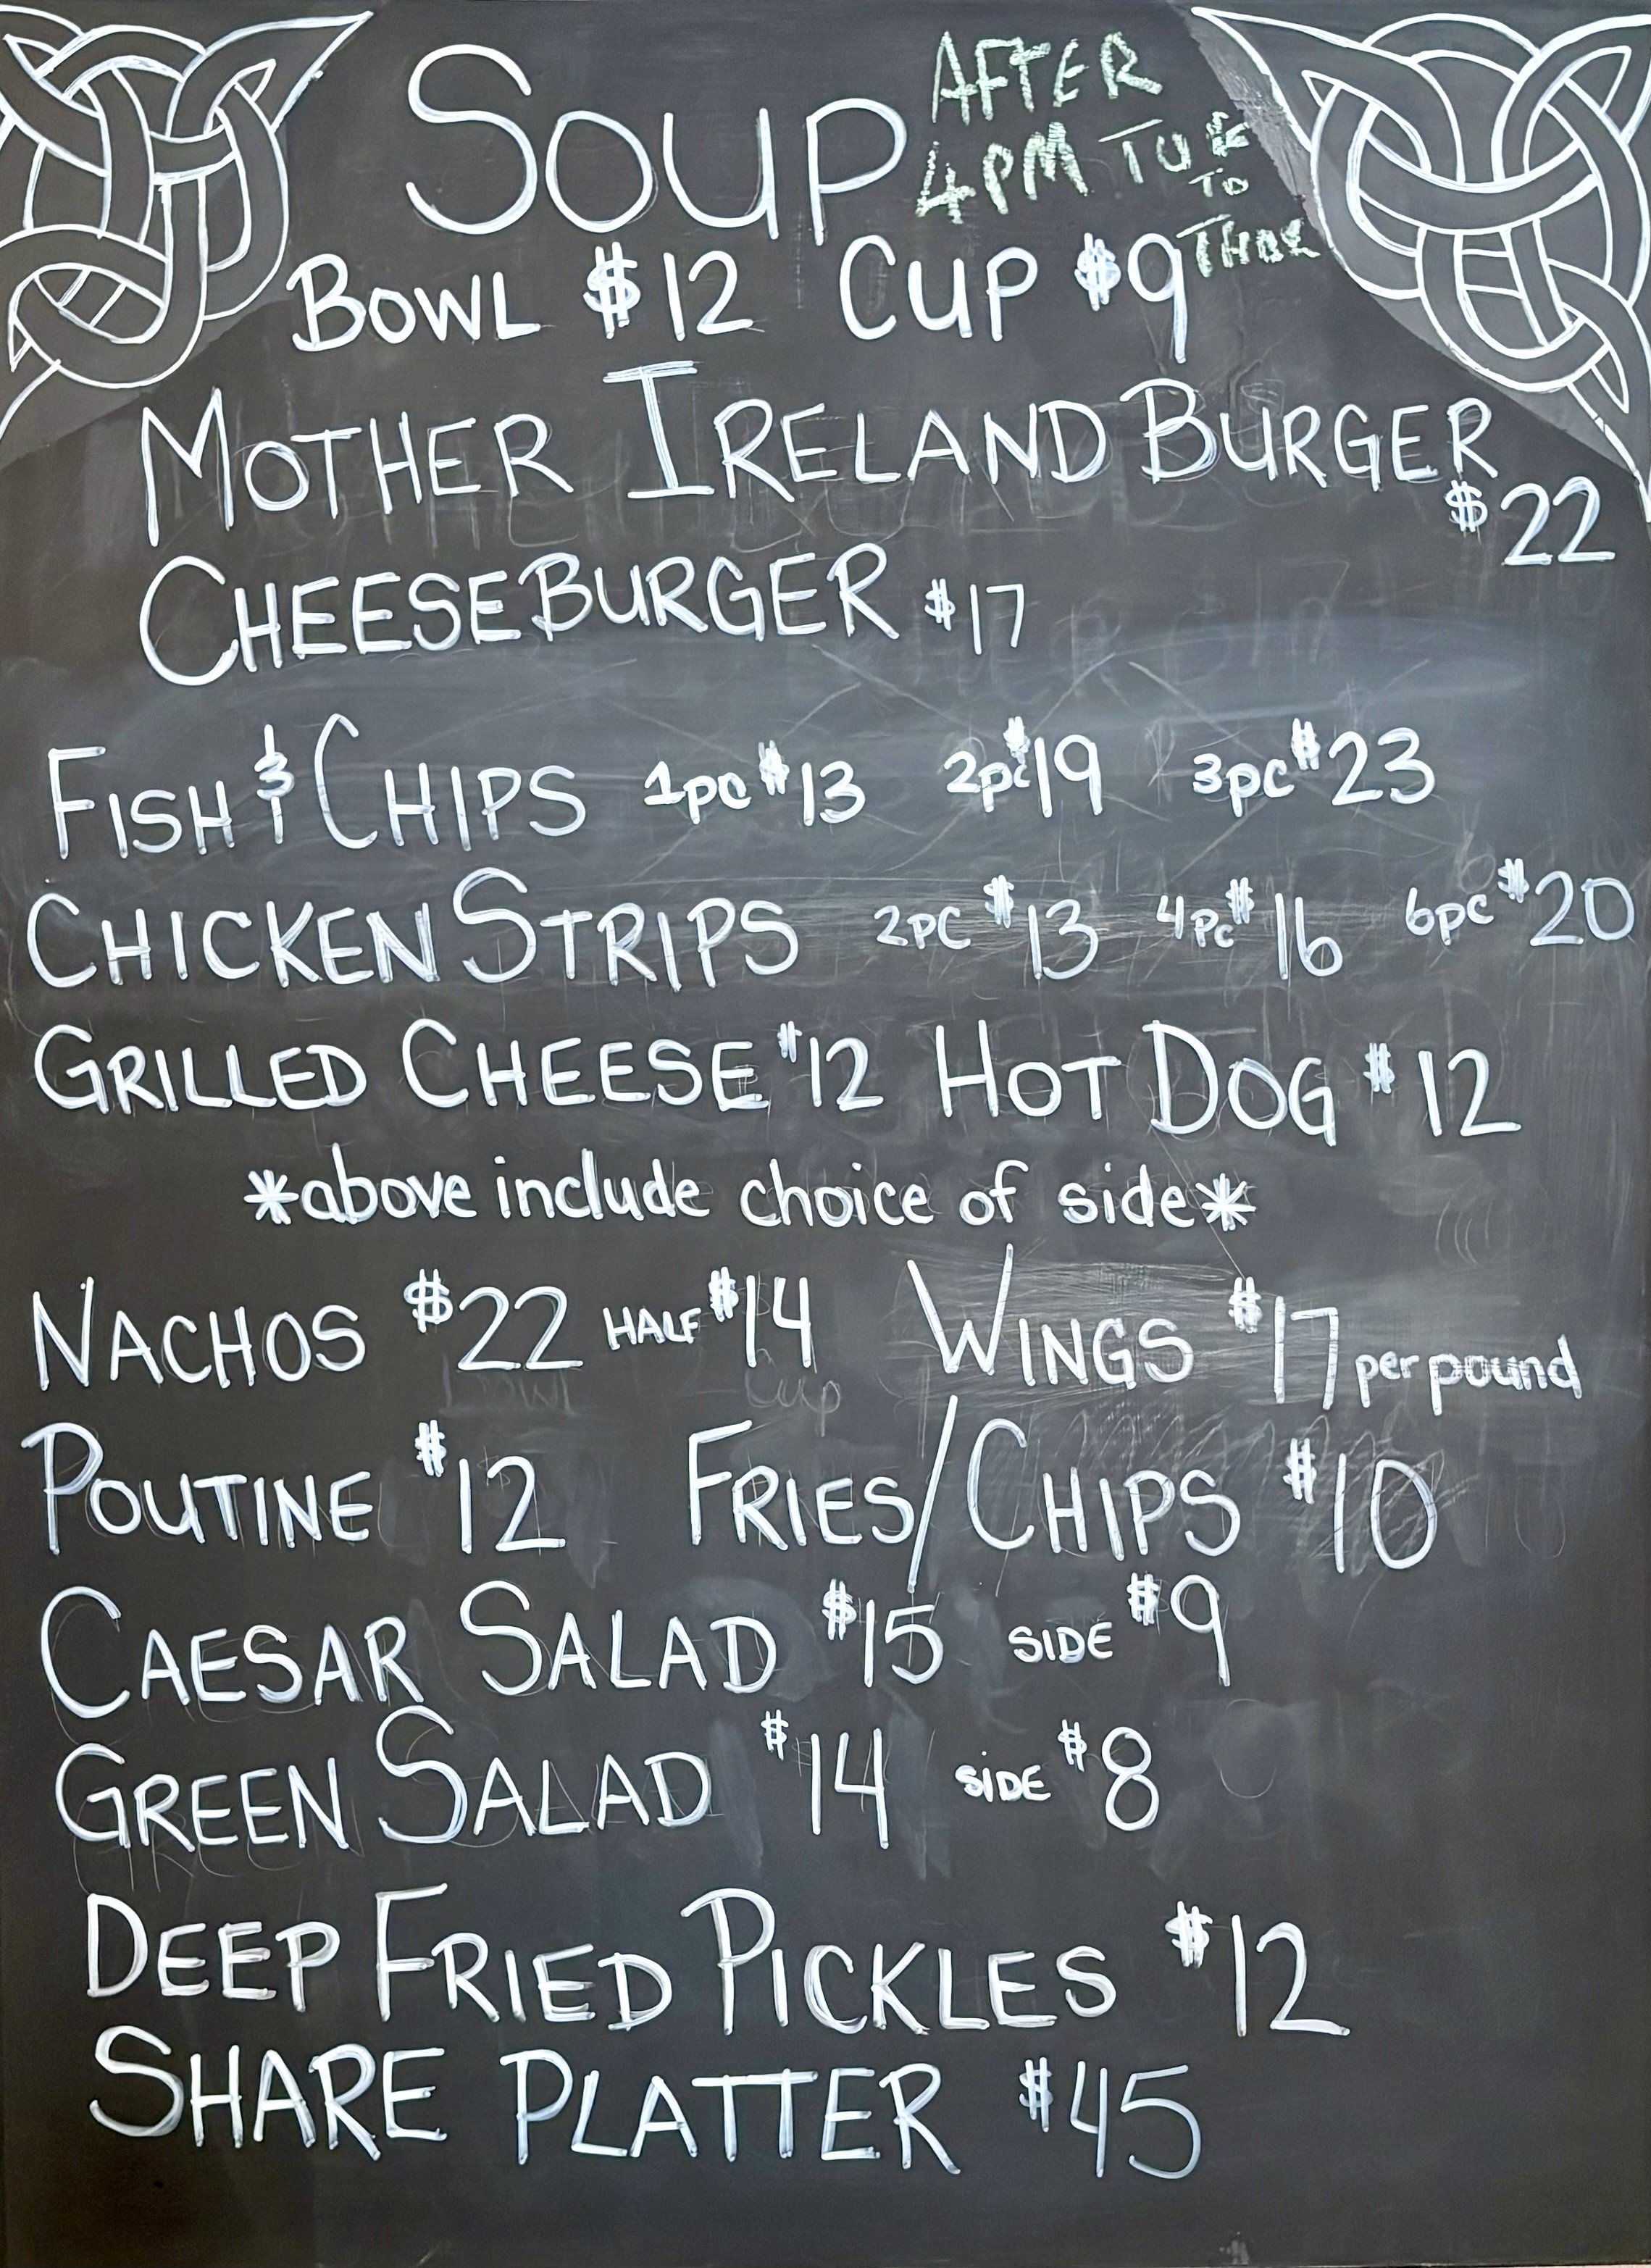 SOUP AFTER
4PM TUE
TO
THUR
BOWL $12 CUP $9
MOTHER IRELAND BURGER
$22
CHEESEBURGER $17
FISH & CHIPS 1pc $13 2pc $19 3pc $23
CHICKEN STRIPS 2PC $13 4Pc $16 6pc $20
GRILLED CHEESE $12 HOT DOG $12
*above include choice of side*
NACHOS $22 HALF $14 WINGS $17 per pound
POUTINE $12 FRIES/CHIPS $10
CAESAR SALAD $15 SIDE $9
GREEN SALAD $14 SIDE $8
DEEP FRIED PICKLES $12
SHARE PLATTER $45